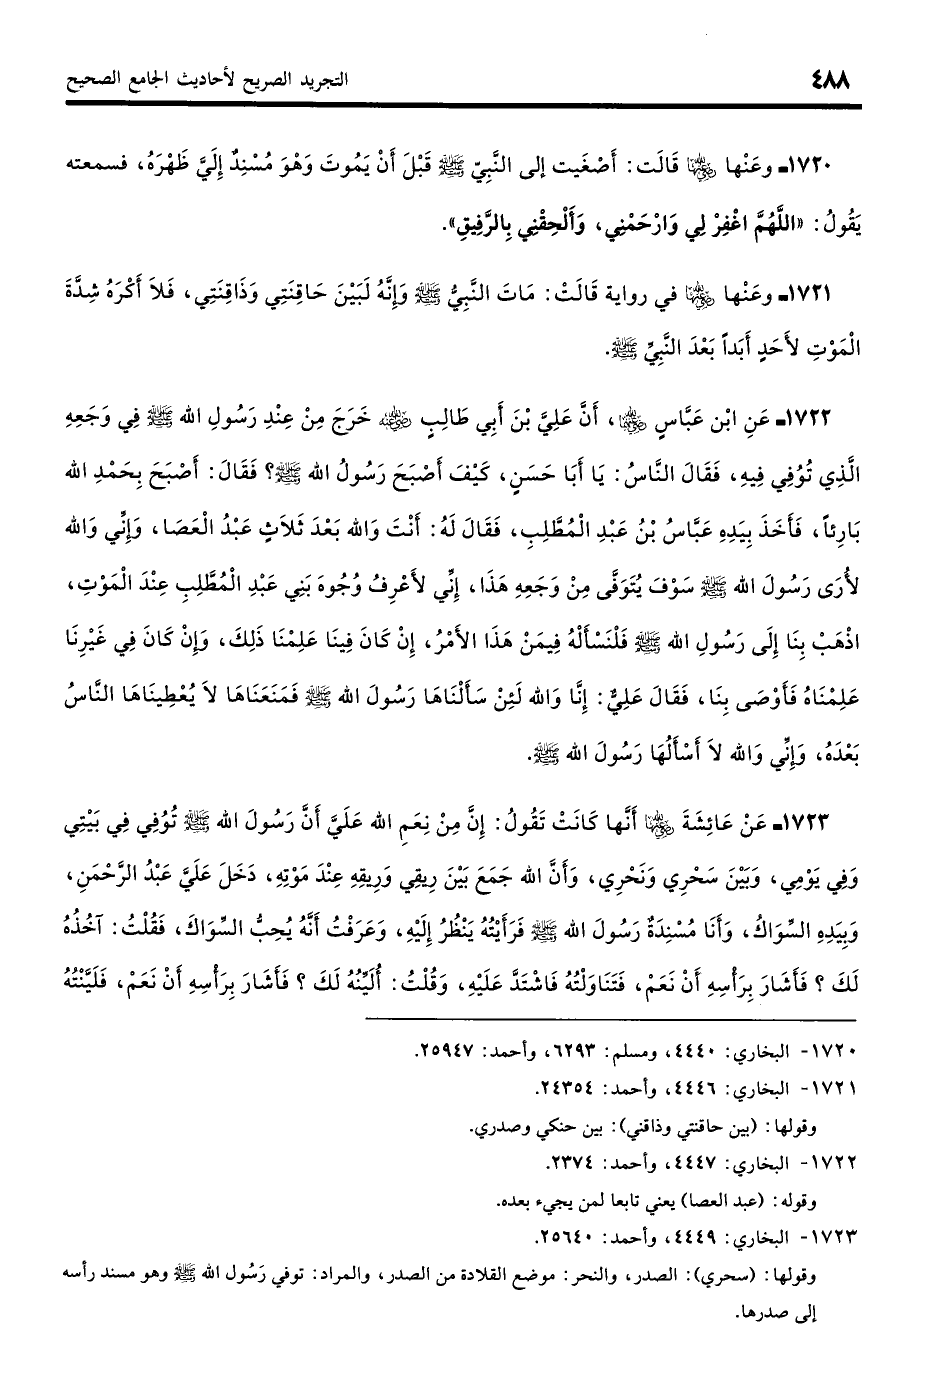 ٤٨٨ التجريد الصريح لأحاديث الجامع الصحيح
١٧٢٠ـ وعَنْها ﵂ قَالَت: أَصْغَيت إلى النَّبِيِّ ﷺ قَبْلَ أَنْ يَمُوتَ وَهْوَ مُسْنِدٌ إِلَيَّ ظَهْرَهُ، فسمعته
يَقُولُ: «اللَّهُمَّ اغْفِرْ لِي وَارْحَمْنِي، وَأَلْحِقْنِي بِالرَّفِيقِ».
١٧٢١ـ وعَنْها ﵂ في رواية قَالَتْ: مَاتَ النَّبِيُّ ﷺ وَإِنَّهُ لَبَيْنَ حَاقِنَتِي وَذَاقِنَتِي، فَلاَ أَكْرَهُ شِدَّةَ
الْمَوْتِ لأَحَدٍ أَبَداً بَعْدَ النَّبِيِّ ﷺ.
١٧٢٢ـ عَنِ ابْن عَبَّاسٍ ﵄، أَنَّ عَلِيَّ بْنَ أَبِي طَالِبٍ ﵁ خَرَجَ مِنْ عِنْدِ رَسُولِ الله ﷺ فِي وَجَعِهِ
الَّذِي تُوُفِي فِيهِ، فَقَالَ النَّاسُ: يَا أَبَا حَسَنٍ، كَيْفَ أَصْبَحَ رَسُولُ الله ﷺ؟ فَقَالَ: أَصْبَحَ بِحَمْدِ الله
بَارِئاً، فَأَخَذَ بِيَدِهِ عَبَّاسُ بْنُ عَبْدِ الْمُطَّلِبِ، فَقَالَ لَهُ: أَنْتَ وَالله بَعْدَ ثَلاَثٍ عَبْدُ الْعَصَا، وَإِنِّي وَالله
لأُرَى رَسُولَ الله ﷺ سَوْفَ يُتَوَفَّى مِنْ وَجَعِهِ هَذَا، إِنِّي لأَعْرِفُ وُجُوهَ بَنِي عَبْدِ الْمُطَّلِبِ عِنْدَ الْمَوْتِ،
اذْهَبْ بِنَا إِلَى رَسُولِ الله ﷺ فَلْنَسْأَلْهُ فِيمَنْ هَذَا الأَمْرُ، إِنْ كَانَ فِينَا عَلِمْنَا ذَلِكَ، وَإِنْ كَانَ فِي غَيْرِنَا
عَلِمْنَاهُ فَأَوْصَى بِنَا، فَقَالَ عَلِيٌّ: إِنَّا وَالله لَئِنْ سَأَلْنَاهَا رَسُولَ الله ﷺ فَمَنَعَنَاهَا لاَ يُعْطِينَاهَا النَّاسُ
بَعْدَهُ، وَإِنِّي وَالله لاَ أَسْأَلُهَا رَسُولَ الله ﷺ.
١٧٢٣ـ عَنْ عَائِشَةَ ﵂ أَنَّها كَانَتْ تَقُولُ: إِنَّ مِنْ نِعَمِ الله عَلَيَّ أَنَّ رَسُولَ الله ﷺ تُوُفِي فِي بَيْتِي
وَفِي يَوْمِي، وَبَيْنَ سَحْرِي وَنَحْرِي، وَأَنَّ الله جَمَعَ بَيْنَ رِيقِي وَرِيقِهِ عِنْدَ مَوْتِهِ، دَخَلَ عَلَيَّ عَبْدُ الرَّحْمَنِ،
وَبِيَدِهِ السِّوَاكُ، وَأَنَا مُسْنِدَةٌ رَسُولَ الله ﷺ فَرَأَيْتُهُ يَنْظُرُ إِلَيْهِ، وَعَرَفْتُ أَنَّهُ يُحِبُّ السِّوَاكَ، فَقُلْتُ: آخُذُهُ
لَكَ؟ فَأَشَارَ بِرَأْسِهِ أَنْ نَعَمْ، فَتَنَاوَلْتُهُ فَاشْتَدَّ عَلَيْهِ، وَقُلْتُ: أُلَيِّنُهُ لَكَ؟ فَأَشَارَ بِرَأْسِهِ أَنْ نَعَمْ، فَلَيَّنْتُهُ
١٧٢٠- البخاري: ٤٤٤٠، ومسلم: ٦٢٩٣، وأحمد: ٢٥٩٤٧.
١٧٢١- البخاري: ٤٤٤٦، وأحمد: ٢٤٣٥٤.
وقولها: (بين حاقنتي وذاقني): بين حنكي وصدري.
١٧٢٢- البخاري: ٤٤٤٧، وأحمد: ٢٣٧٤.
وقوله: (عبد العصا) يعني تابعا لمن يجيء بعده.
١٧٢٣- البخاري: ٤٤٤٩، وأحمد: ٢٥٦٤٠.
وقولها: (سحري): الصدر، والنحر: موضع القلادة من الصدر، والمراد: توفي رَسُول الله ﷺ وهو مسند رأسه
إلى صدرها.